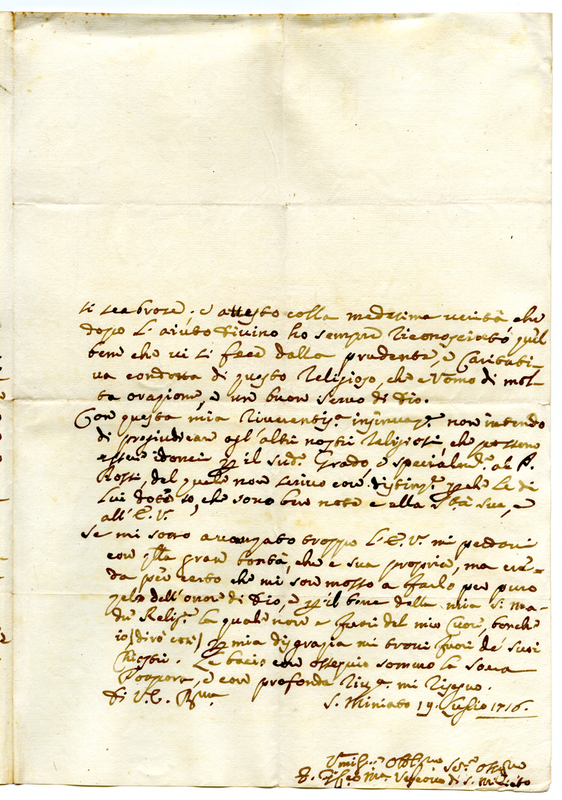 ti scabrose: e attesto colla medesima verità che
dopo l'aiuto divino ho sempre riconosciuto quel
bene che vi si face dalla prudente, e caritati-
va condotta di questo Religioso, che è Uomo di mol-
ta orazione, e un buon servo di Dio.
Con questa mia riverentis.ᵃ insinuaz.ᵉ non intendo
di pregiudicare agl'altri nostri Religiosi, che possono
essere idonei p il sud.ᵒ Grado, e specialm.ᵉ al P.
Rossi, del quale non scrivo con distinz.ᵉ pche le di
lui doti so, che sono ben note e alla Stà sua, e
all'E.V.
Se mi sono avanzato troppo l'E.V. mi perdoni
con qlla gran bontà, che è sua propria, ma cre-
da però certo che mi son mosso a farlo per puro
zelo dell'onor di Dio, e p il bene della mia S. Ma-
dre Relig.ᵉ la quale non è fuori del mio cuore, benche
io (dirò così) p mia disgrazia mi trovi fuori de' suoi
Chiostri. Le bacio con ossequio sommo la Sacra
Porpora, e con profonda riv.ᵃ mi rasegno.
Di V.E. Rma
S. Miniato 19. Luglio 1716.
Umiliss.ᵒ Obblmo Ser.ᵉ Ossmo
Vescovo di S. Miniato